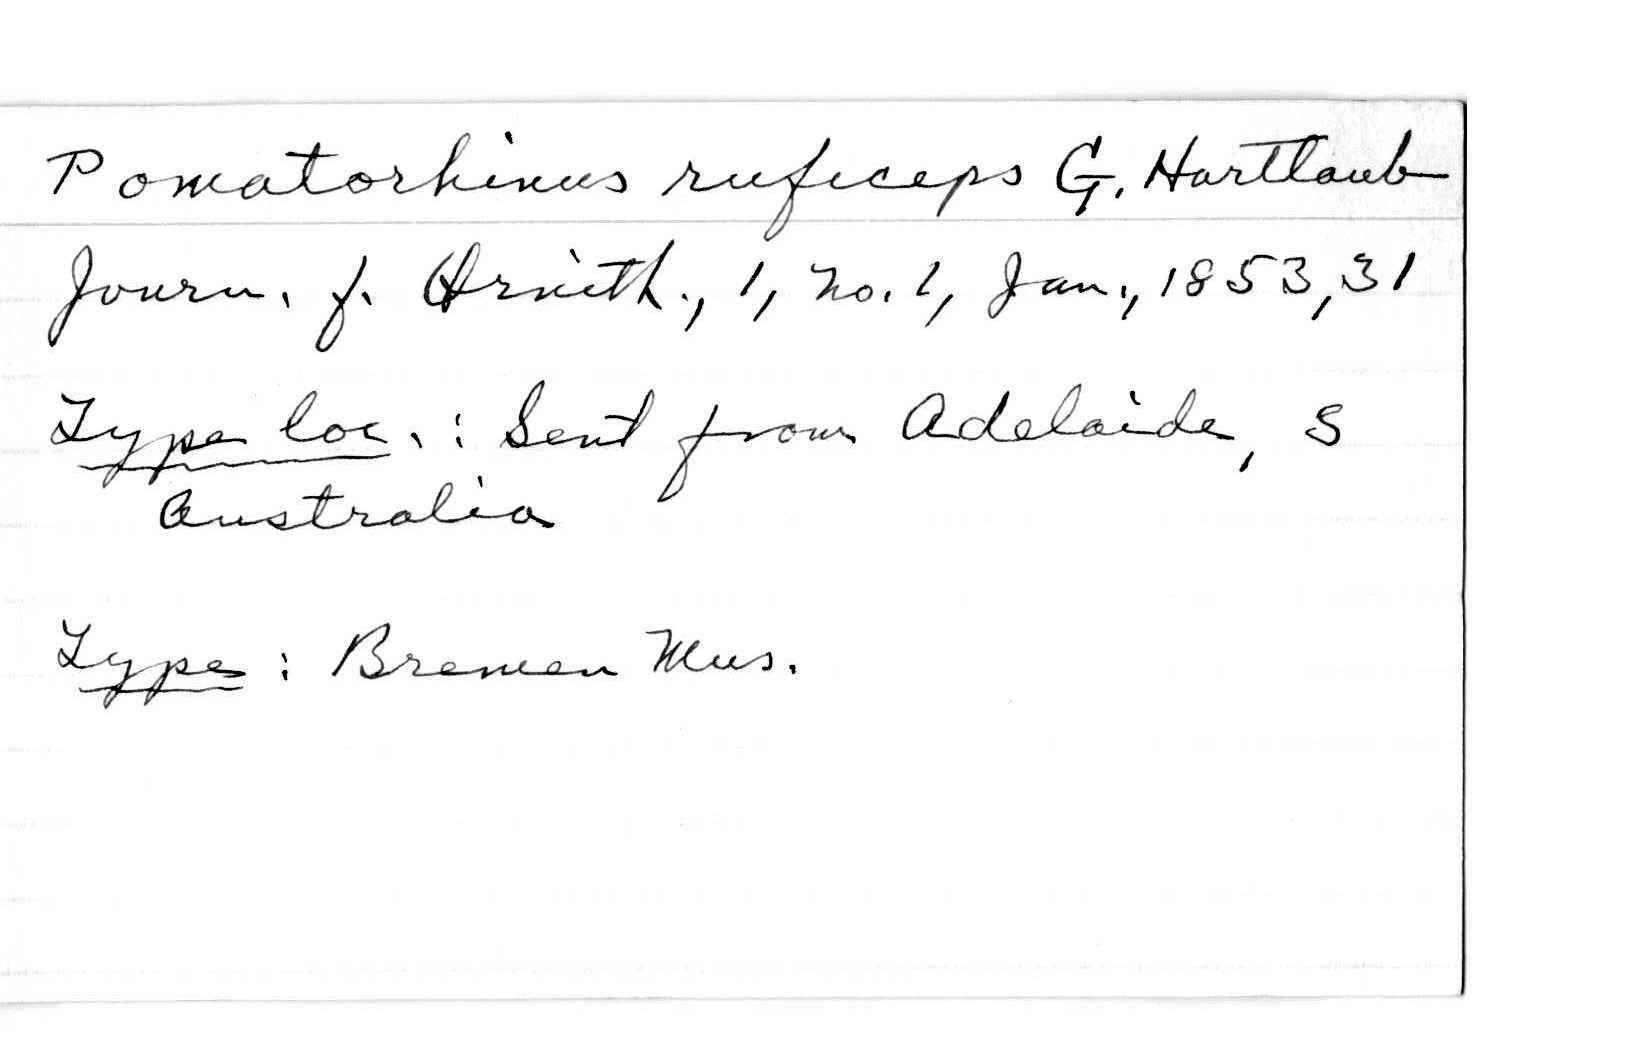 Pomatorhinus ruficeps G. Hartlaub
Journ. f. Ornith., 1, no. 1, Jan., 1853, 31
Type loc.: Sent from Adelaide, S
Australia
Type: Bremen Mus.